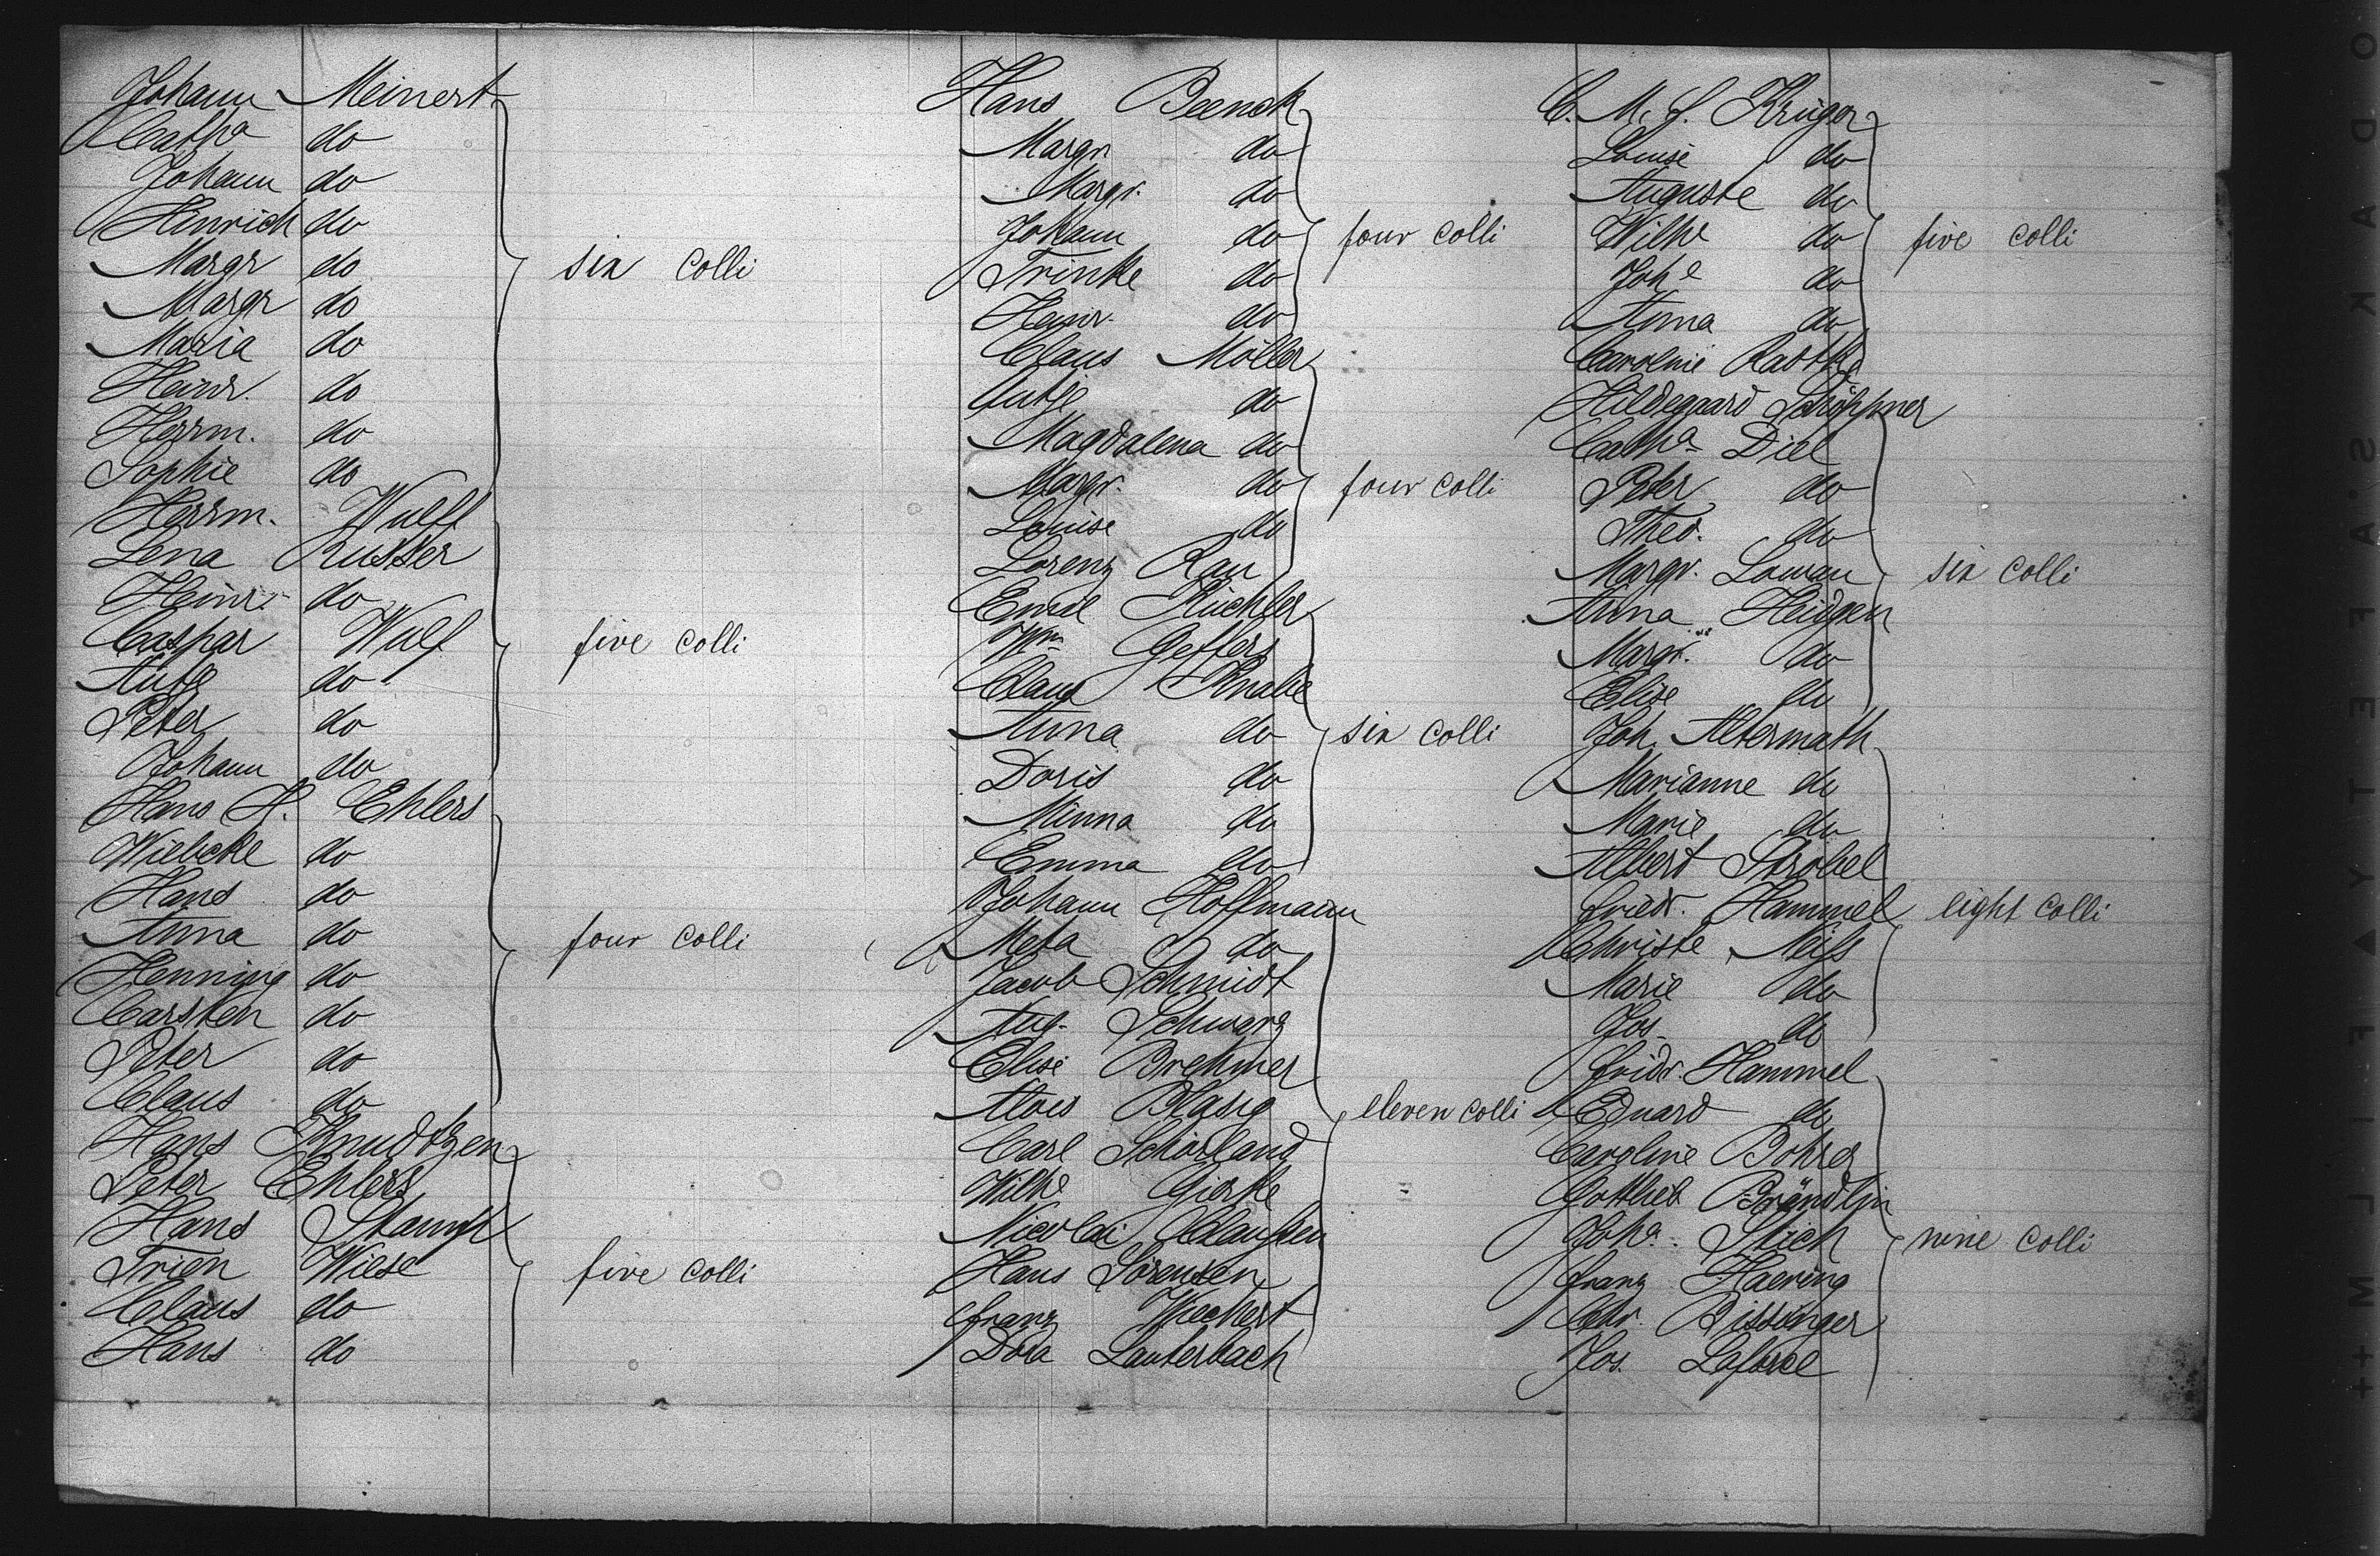 Johann Meinert
Catha do
Johann do
Hinrich do
Margr do
six colli
Margr do
Maria do
Heinr. do
Herrm. do
Sophie do
Herrm. Wulf
Lena Russer
Heinr. do
Caspar Wulf
five colli
Antje do
Peter do
Johann do
Hans H. Ehlers
Wiebcke do
Hans do
Anna do
four colli
Henning do
Carsten do
Peter do
Claus do
Hans Knudtzen
Peter Ehlers
Hans Stamp
Trien Wiese
five colli
Claus do
Hans do
Hans Beenck
Margr. do
Margr. do
Johann do
four colli
Trinke do
Heinr. do
Claus Möller
Antje do
Magdalena do
Margr. do
four colli
Louise do
Lorenz Rau
Emil Küchler
Wm Geffers
Claus Knabe
Anna do
six colli
Doris do
Minna do
Emma do
Johann Hoffmann
Meta do
Jacob Schmidt
Aug. Schwarz
Elise Brehmer
Alois Blasig
eleven colli
Carl Schörland
Wilhe Gierke
Nicolai Claussen
Hans Sörensen
Franz Wiechert
Dora Lauterbach
C. M. S. Krüger
Louise do
Auguste do
Wilhe do
five colli
Johe do
Anna do
Caroline Radtke
Hildegaard Schöppner
Catha Diel
Peter do
Theo. do
Margr. Lowan
six colli
Anna Heidgen
Margr. do
Elise do
Joh. Altermath
Marianne do
Marie do
Albert Strobel
Friedr. Hammel
eight colli
Christe Neiss
Marie do
Jos. do
Fridr. Hammel
Eduard do
Caroline Bohrer
Gottlieb Brändlin
Joha. Stich
nine colli
Franz Haering
Chr. Bissinger
Jos. Laforce